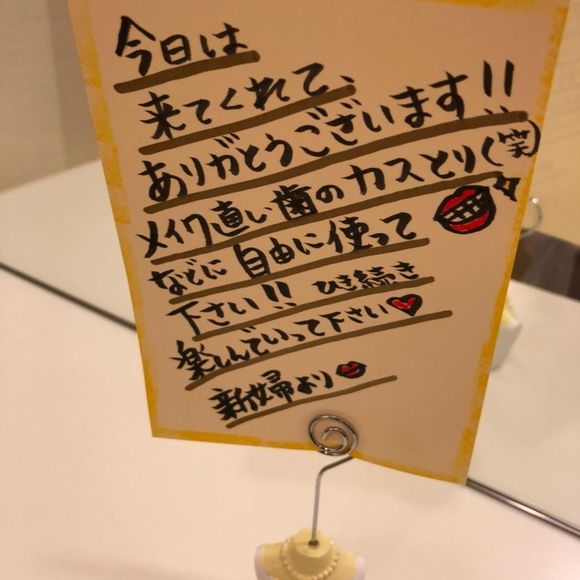 今日は
来てくれて、
ありがとうございます!!
メイク直し歯のカスとり(笑)
などに自由に使って
下さい!! ひき続き
楽しんでいって下さい♥
新婦より